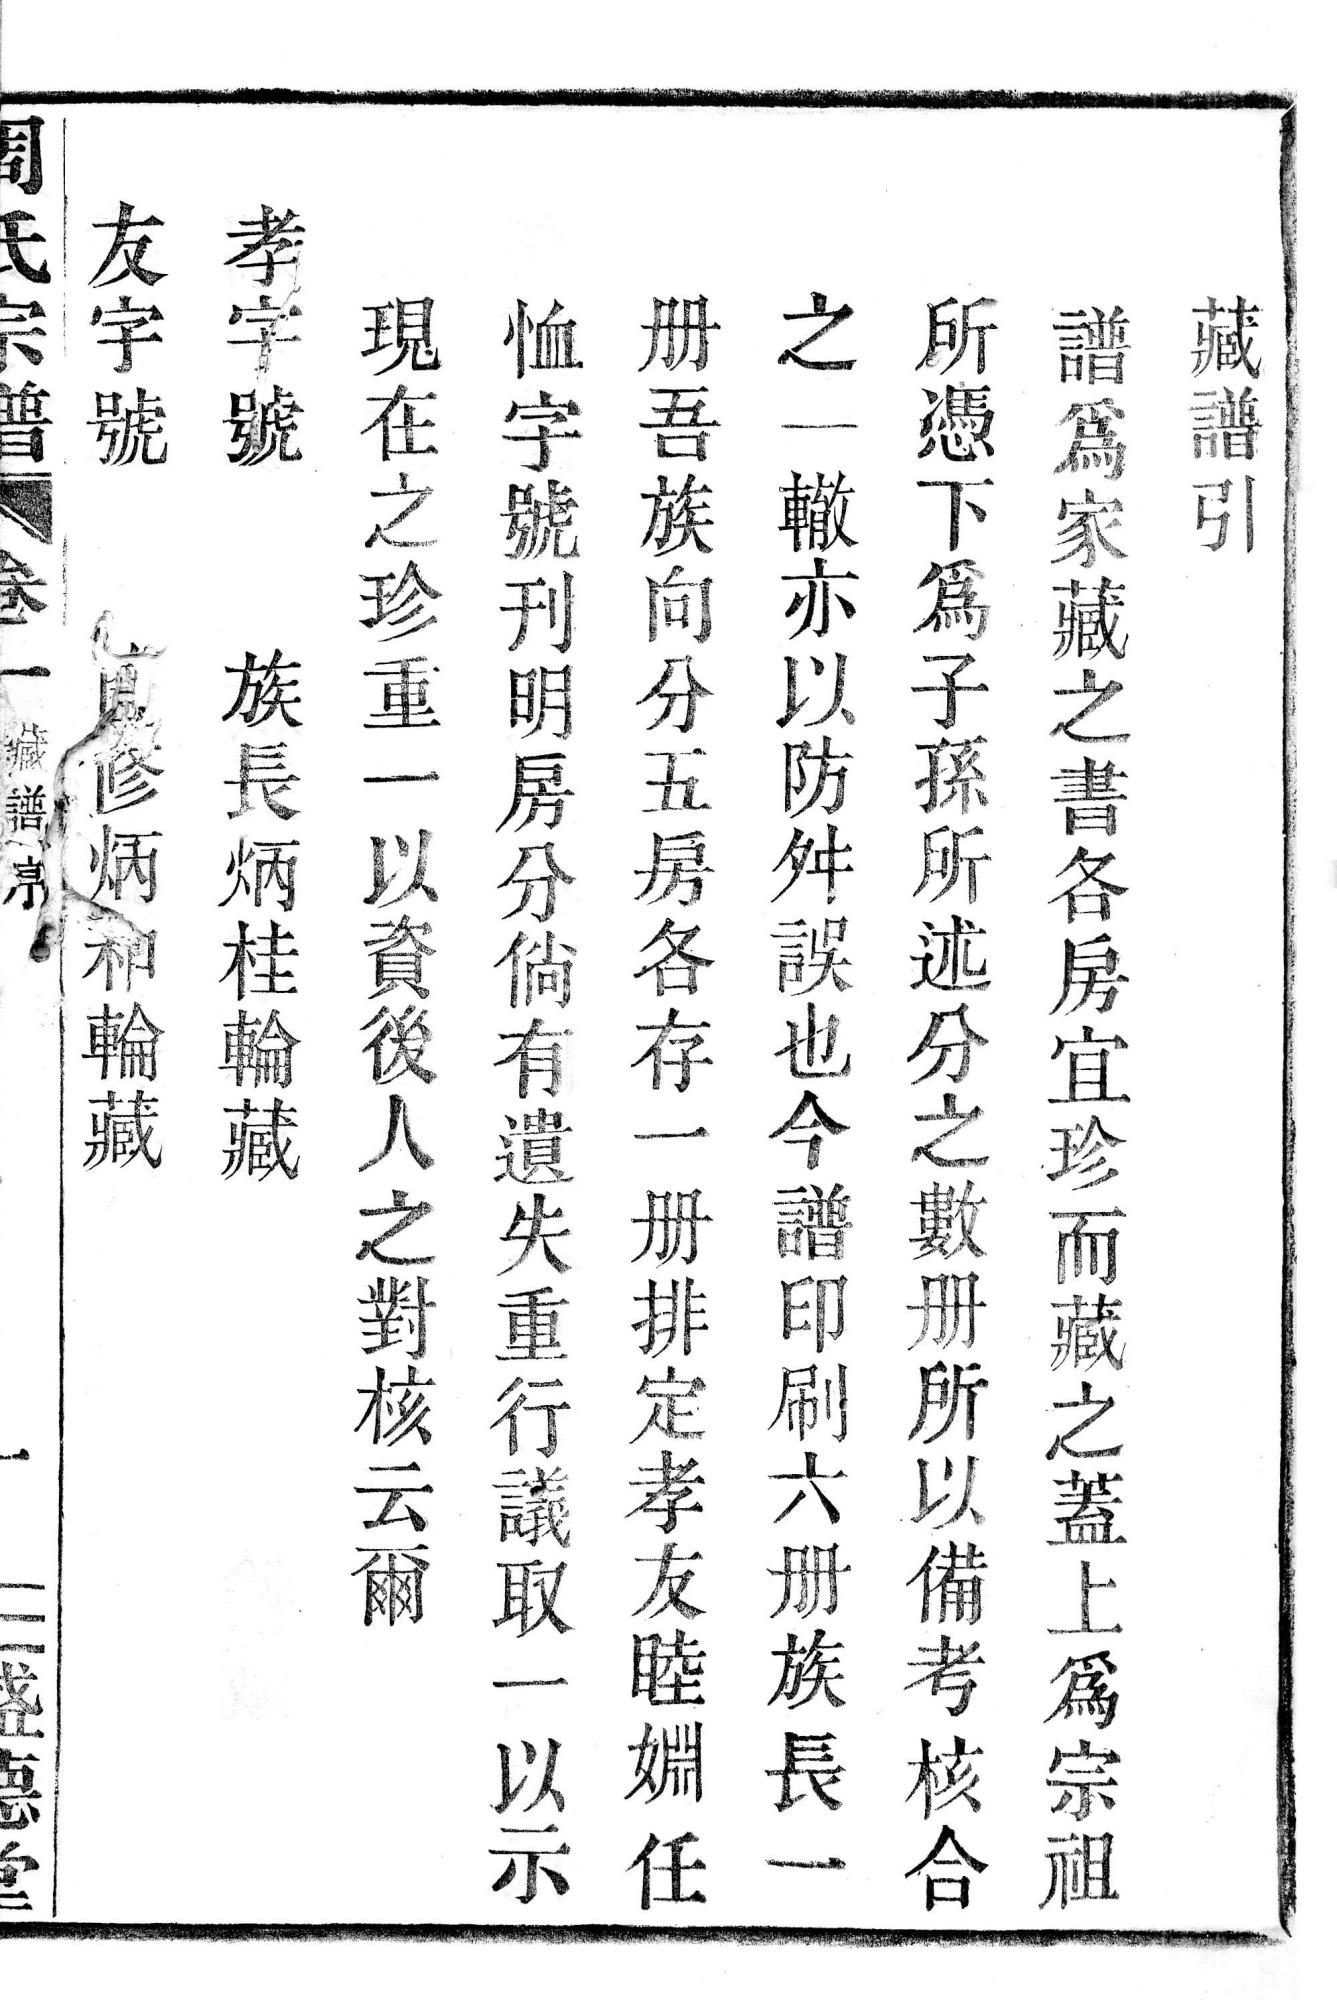 藏譜引
譜爲家藏之書各房宜珍而藏之蓋上爲宗祖
所憑下爲子孫所述分之數册所以備考核合
之一轍亦以防舛誤也今譜印刷六册族長一
册吾族向分五房各存一册排定孝友睦婣任
恤字號刊明房分倘有遺失重行議取一以示
現在之珍重一以資後人之對核云爾
孝字號 族長炳桂輪藏
友字號 修炳和輪藏
周氏宗譜 卷一 藏譜 一 三盛德堂